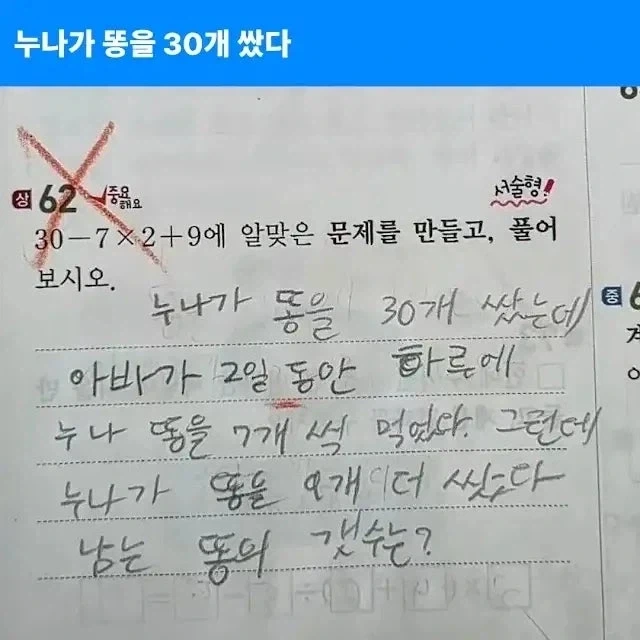 누나가 똥을 30개 쌌다
상 62 중요해요
서술형!
30－7×2＋9에 알맞은 문제를 만들고, 풀어
보시오.
누나가 똥을 30개 쌌는데
아바가 2일 동안 하루에
누나 똥을 7개 씩 먹었다. 그런데
누나가 똥을 9개 더 쌌다
남는 똥의 갯수는?
중